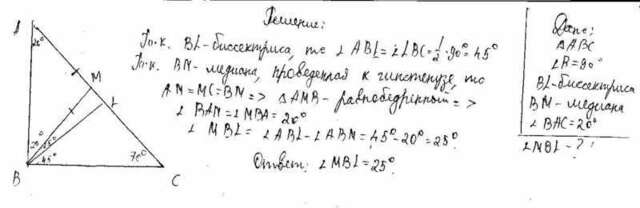 Решение:
Т.к. BL-биссектриса, то ∠ABL=∠LBC=1/2·90°=45°
Т.к. BM-медиана, проведенная к гипотенузе, то
AM=MC=BM=> △AMB-равнобедренный=>
∠BAM=∠MBA=20°
∠MBL=∠ABL-∠ABM=45°-20°=25°
Ответ: ∠MBL=25°
Дано:
△ABC
∠B=90°
BL-биссектриса
BM-медиана
∠BAC=20°
∠MBL-?
20°
M
L
20°
25°
45°
70°
B
C